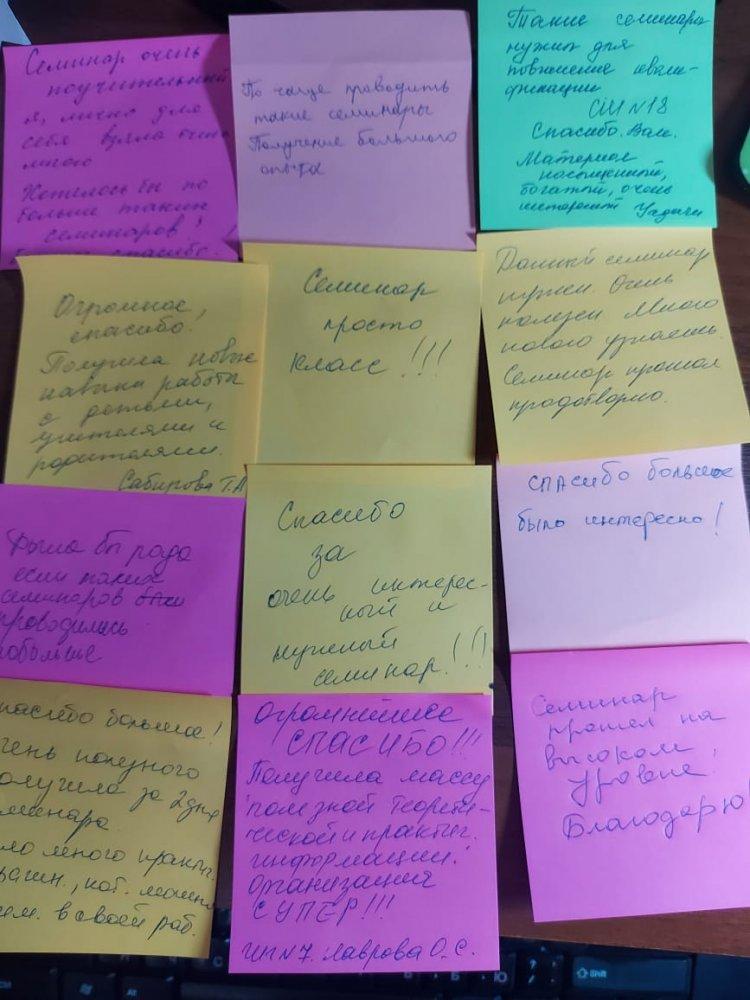 Семинар очень
поучительный
я, лично для
себя взяла очень
много
Хотелось бы по
больше таких
семинаров!
спасибо.
По чаще проводить
такие семинары
Получение большого
опыта
Такие семинары
нужны для
повышения квали-
фикации
СШ N18
Спасибо Вам.
Материал
насыщенный,
богатый, очень
интересный Удачи
Огромное,
спасибо.
Получила новые
навыки работы
с детьми,
учителями и
родителями.
Сабирова Т.А
Семинар
просто
класс!!!
Данный семинар
нужен. Очень
полезен Много
нового узнаешь.
Семинар прошел
плодотворно.
Была бы рада
если таких
семинаров
проводились
побольше
Спасибо
за
очень интерес-
ный и
нужный
семинар!!!
спасибо большое
было интересно!
пасибо большое!
чень полезного
олучила за 2 дня
еминара
ло много практич.
кот. можно
в своей раб.
Огромнейшее
СПАСИБО!!!
Получила массу
полезной теорети-
ческой и практич.
информации!
Организация
СУПЕР!!!
N7. Лаврова О.С.
Семинар
прошел на
высоком
уровне.
Благодарю!
Shift